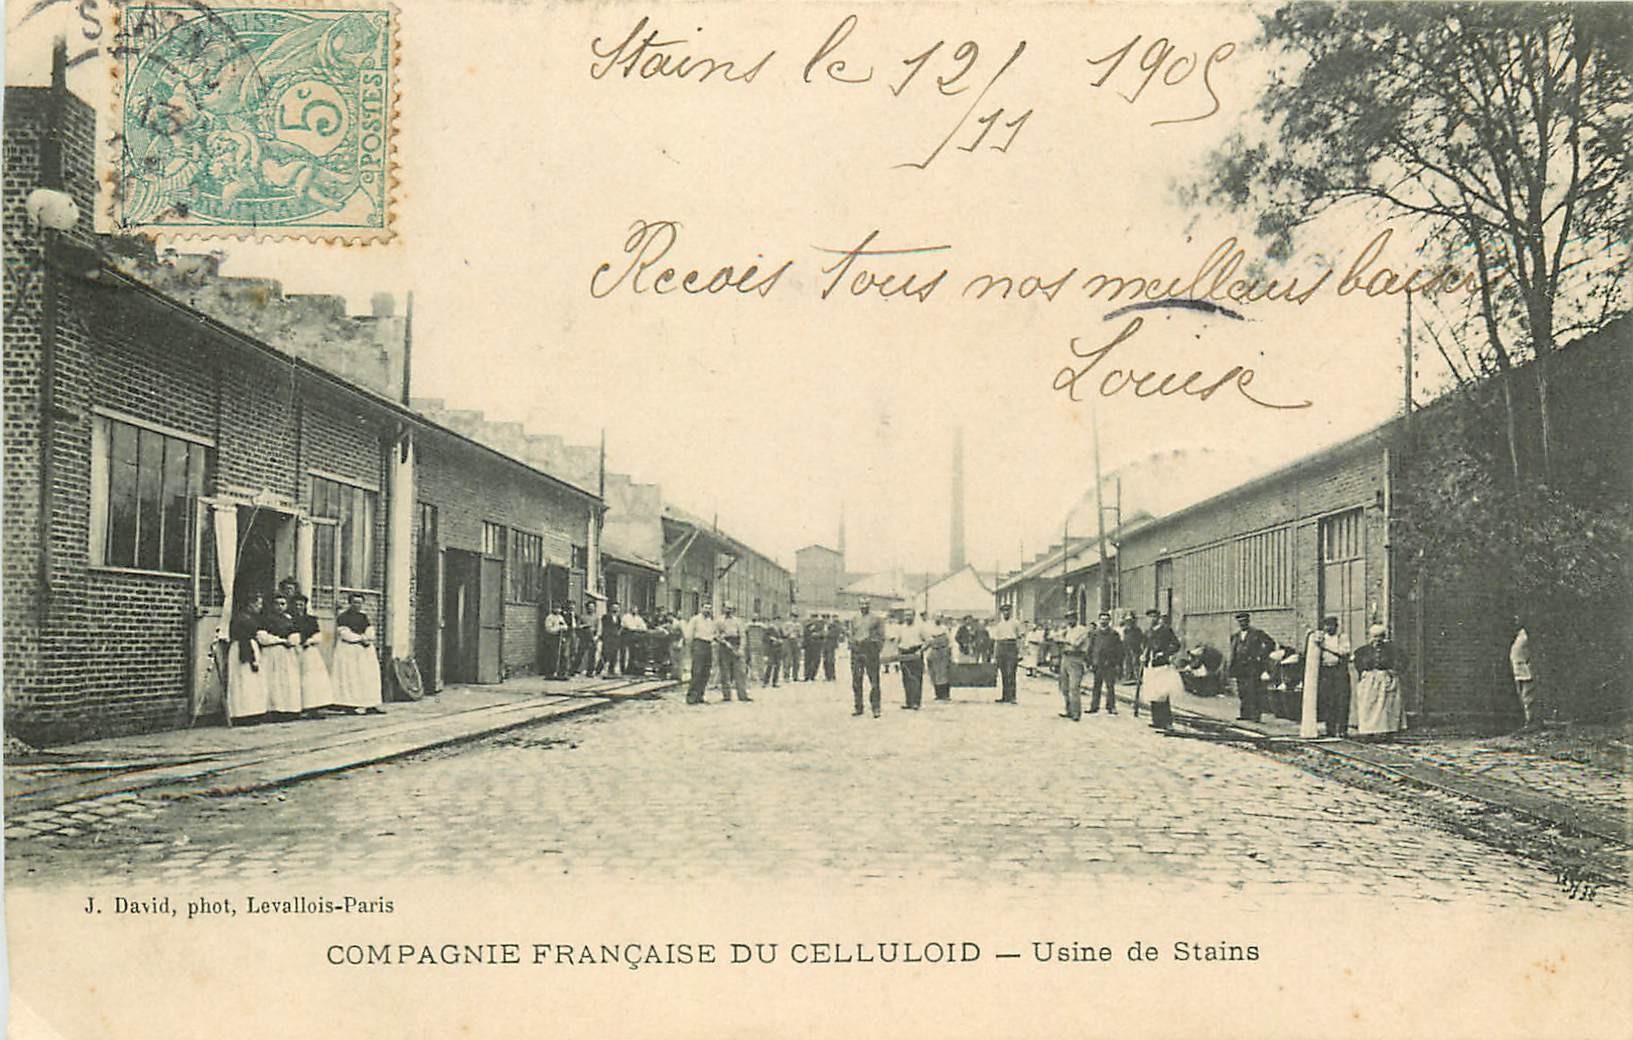 STAINS
5c
POSTES
Stains le 12/11 1905
Recois tous nos meilleurs baisers
Louise
J. David, phot, Levallois-Paris
COMPAGNIE FRANÇAISE DU CELLULOID — Usine de Stains